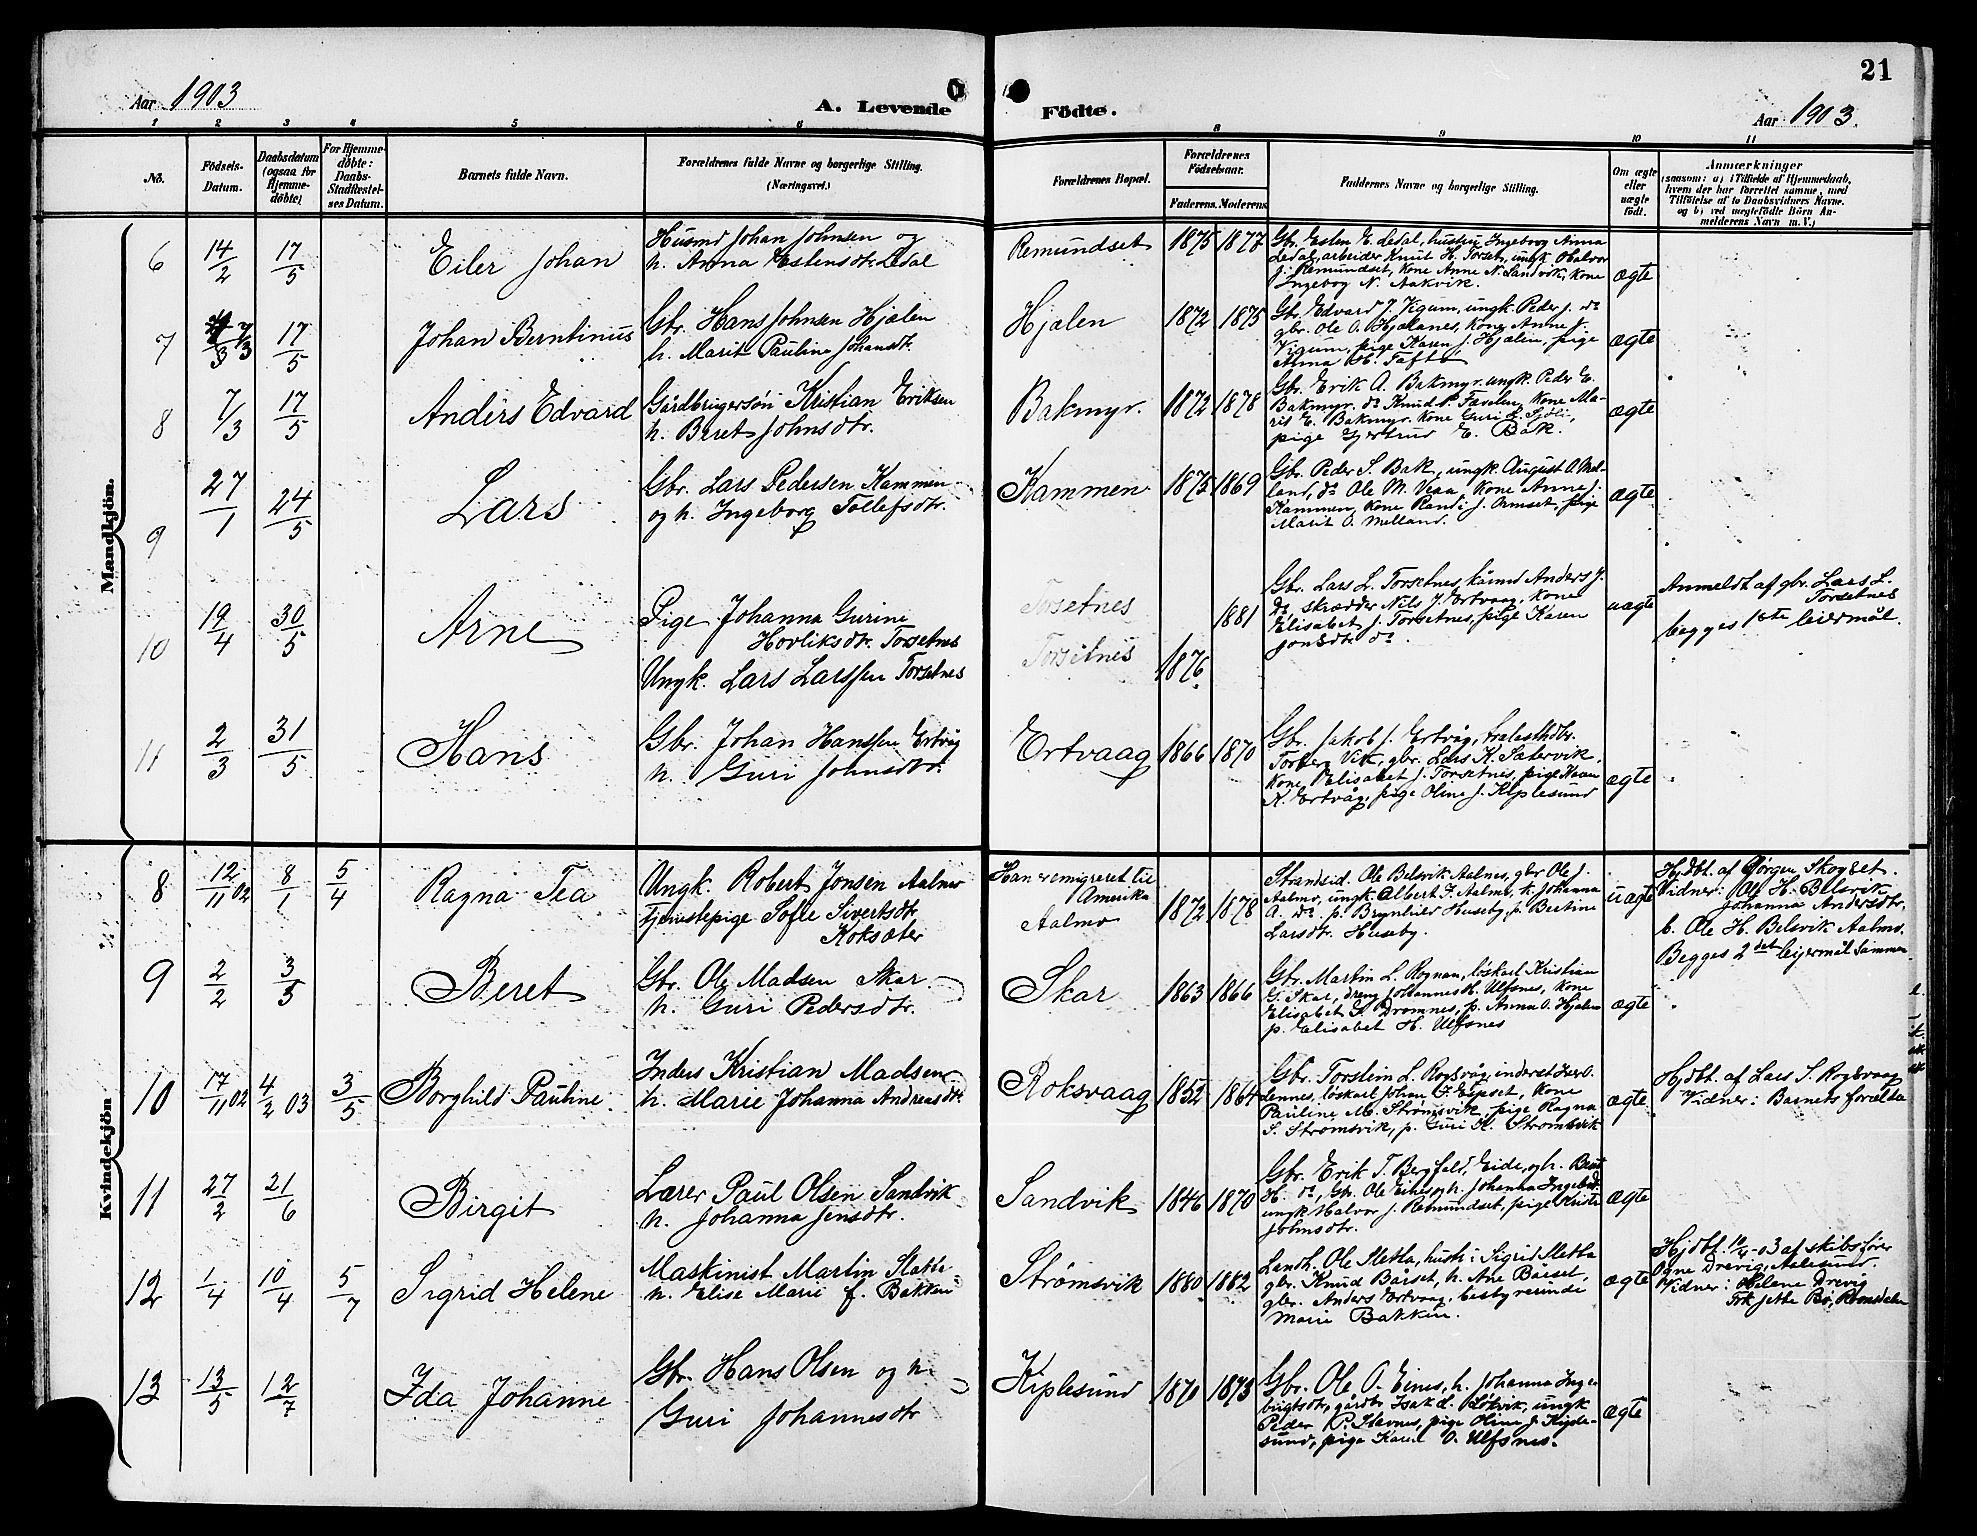 21
Aar 1903
A. Levende Födte.
Aar 1903.
1 2 3 4 5 6 8 9 10 11
No.
Födsels-Datum.
Daabsdatum (ogsaa for Hjemmedöbte)
For Hjemmedöbte: Daabs-Stadfæstelses Datum.
Barnets fulde Navn.
Forældrenes fulde Navne og borgerlige Stilling. (Næringsvei.)
Forældrenes Bopæl.
Forældrenes Födselsaar.
Faderens. Moderens.
Faddernes Navne og borgerlige Stilling.
Om ægte eller uægte födt.
Anmærkninger
(saasom: a) i Tilfælde af Hjemmedaab,
hvem der har forrettet samme, med
Tilföielse af to Daabsvidners Navne.
og b) ved uægtefödte Börn Anmelderens Navn m. V.)
Mandkjön.
6 14/2 17/5 Eiler Johan
Husmd Johan Johnsen og
h. Anna Estensdtr. Ledal
Remundset 1875 1877
Gbr. Esten E. Ledal, hustru Ingeborg Anna
Ledal, arbeider Knut H. Torset, ungk. Halvor
J. Remundset, Kone Anne N. Sandvik, kone
Ingeborg N. Aakvik.
ægte
7 7/3 17/5 Johan Berntinus
Gbr. Hans Johnsen Hjælen
h. Marit Pauline Johansdtr.
Hjælen 1872 1875
Gbr. Edvard J. Vigum, ungk. Peder J. do
gbr. Ole O. Hjælanes, Kone Anne J.
Vigum, pige Karen J. Hjælen, pige
Anna H. Taftö
ægte
8 7/3 17/5 Anders Edvard
Gårdbrugersøn Kristian Eriksen
h. Beret Johnsdtr.
Bakmyr. 1872 1878
Gbr. Erik A. Bakmyr. ungk. Peder E.
Bakmyr. do Knud P. Færelen, Kone Ma-
rit E. Bakmyr. Kone Guri L. Sjöli,
pige Gjertrud E. Bak.
ægte
9 27/1 24/5 Lars
Gbr. Lars Pedersen Kammen
og h. Ingeborg Tollefsdtr.
Kammen 1875 1869
Gbr. Peder S. Bak, ungk. August O. Mel-
land, do Ole M. Veaa, Kone Anne J.
Kammen, Kone Randi J. Ormset, pige
Marit O. Melland.
ægte
10 19/4 30/5 Arne
Pige Johanna Gurine
Hovliksdtr. Torsetnes
Ungk. Lars Larssen Torsetnes
Torsetnes 1881
Torsetnes 1876
Gbr. Lars L. Torsetnes, kårmd Anders J.
do, skrædder Nils J. Ertvaag, kone
Elisabet J. Torsetnes, pige Karen
Jonsdtr. do.
uægte
Anmeldt af gbr. Lars L.
Torsetnes
begges 1ste leiermål.
11 2/3 31/5 Hans
Gbr. Johan Hanssen Ertvåg
h. Guri Johnsdtr.
Ertvaag 1866 1870
Gbr. Jakob J. Ertvåg,
Torber Vik, gbr. Lars K. Sætervik,
Kone Elisabet J. Torsetnes, pige Karen
K. Ertvåg, pige Oline J. Kiplesund
ægte
Kvindekjön
8 12/11 02 8/1 5/4 Ragna Tea
Ungk. Robert Jonsen Aalmo
Tjenestepige Sofie Sivertsdtr.
Koksæter
Han er emigreret til
Amerika
Aalmo 1872 1878
Strandsid. Ole Belsvik Aalnes, gbr Ole J.
Aalmo, ungk. Albert J. Aalmo, k. Johanna
A. do p. Brynhild Huseby, p. Bertine
Larsdtr. Huseby.
uægte
Hjdbt. af Jørgen Skogset.
Vidner: Ole H. Belsvik
Johanna Andersdtr.
b. Ole H. Belsvik Aalmo.
Begges 2det leiermål sammen
9 2/2 3/5 Beret
Gbr. Ole Madsen Skar
h. Guri Pedersdtr.
Skar 1863 1866
Gbr. Martin L. Rognan, løskarl Kristian
G. Skar, dreng Johannes H. Ulfsnes, kone
Elisabet S. Dromnes, p. Anna O. Hjælen
p. Elisabet H. Ulfsnes
ægte
10 17/11 02 4/2 03 3/5 Borghild Pauline
Inders Kristian Madsen
h. Marie Johanna Andreasdtr.
Roksvaag 1852 1864
Gbr. Torstein L. Rogsvåg, inderst
Lennes, løskarl Johan J. Espset, kone
Pauline M. Strømsvik, pige Ragna
S. Strømsvik, p. Guri K. Strømsvik
ægte
Hjdbt. af Lars S. Rogsvaag
Vidner: Barnets forældre
11 27/2 21/6 Birgit
Lærer Paul Olsen Sandvik
h. Johanna Jensdtr.
Sandvik 1846 1870
Gbr. Erik T. Bergfald, Eide, og h.
H. do, Gbr. Ole Eines og h. Johanna Ingebr.
ungk Halvor J. Remundset, pige Kristi
Johnsdtr.
ægte
12 1/4 10/4 5/7 Sigrid Helene
Maskinist Martin Slatte
h. Elise Marie f. Bakken
Strømsvik 1880 1882
Lendh. Ole Sletta, hustr: Sigrid Sletta
gbr. Knud Bårset, h. Ane Bårset,
gbr. Anders Ertvaag, bestyrerinde
Marie Bakken.
ægte
Hjdbt. 10/4-03 af skibsfører
Ogne Drevig, Aalesund.
Vidner: Helene Drevig
Frk Jette Bø, Romsdalen
13 13/5 12/7 Ida Johanne
Gbr. Hans Olsen og h.
Guri Johannesdtr
Kiplesund 1870 1873
Gbr. Ole O. Eines, h. Johanna Inge-
brigtsdtr, gårdbr Isak L. Løkvik, ungk
Peder P. Stavnes, pige Oline J. Kiple-
sund, pige Karen O. Ulfsnes.
ægte